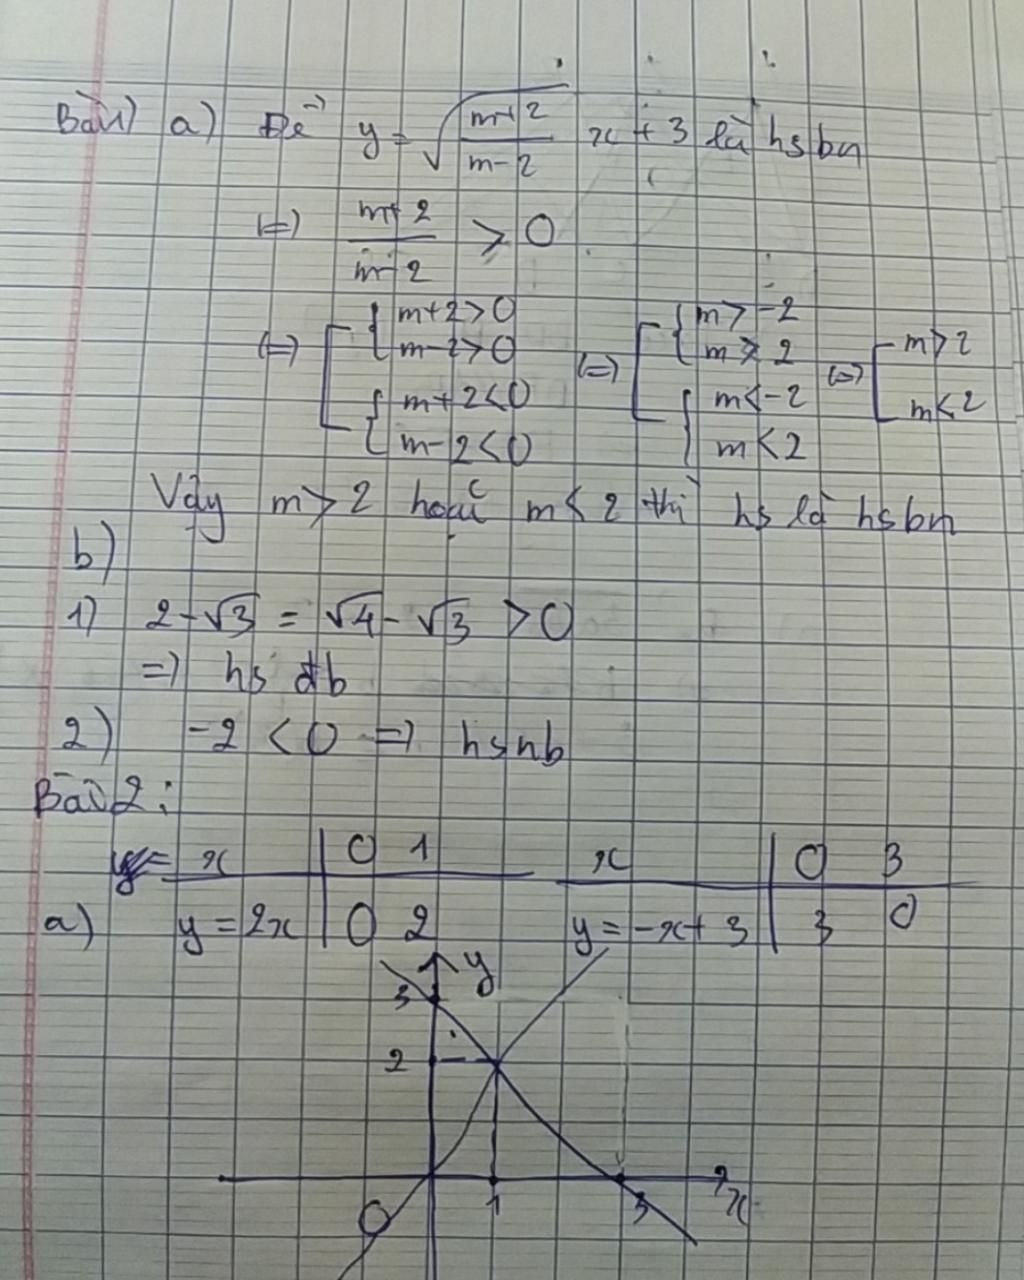 Bài 1) a) Để y = √((m+2)/(m-2)) x + 3 là hs bn
(=) (m+2)/(m-2) > 0
(=) [ { m+2>0 ; m-2>0 ; { m+2<0 ; m-2<0 (=) [ { m>-2 ; m>2 ; { m<-2 ; m<2 (=) [ m>2 ; m<2
Vậy m>2 hoặc m<2 thì hs là hs bn
b)
1) 2-√3 = √4 - √3 >0
=) hs đb
2) -2 <0 =) hs nb
Bài 2:
x | 0 1 x | 0 3
a) y=2x | 0 2 y=-x+3 | 3 0
y
3
2
1 3 x
O